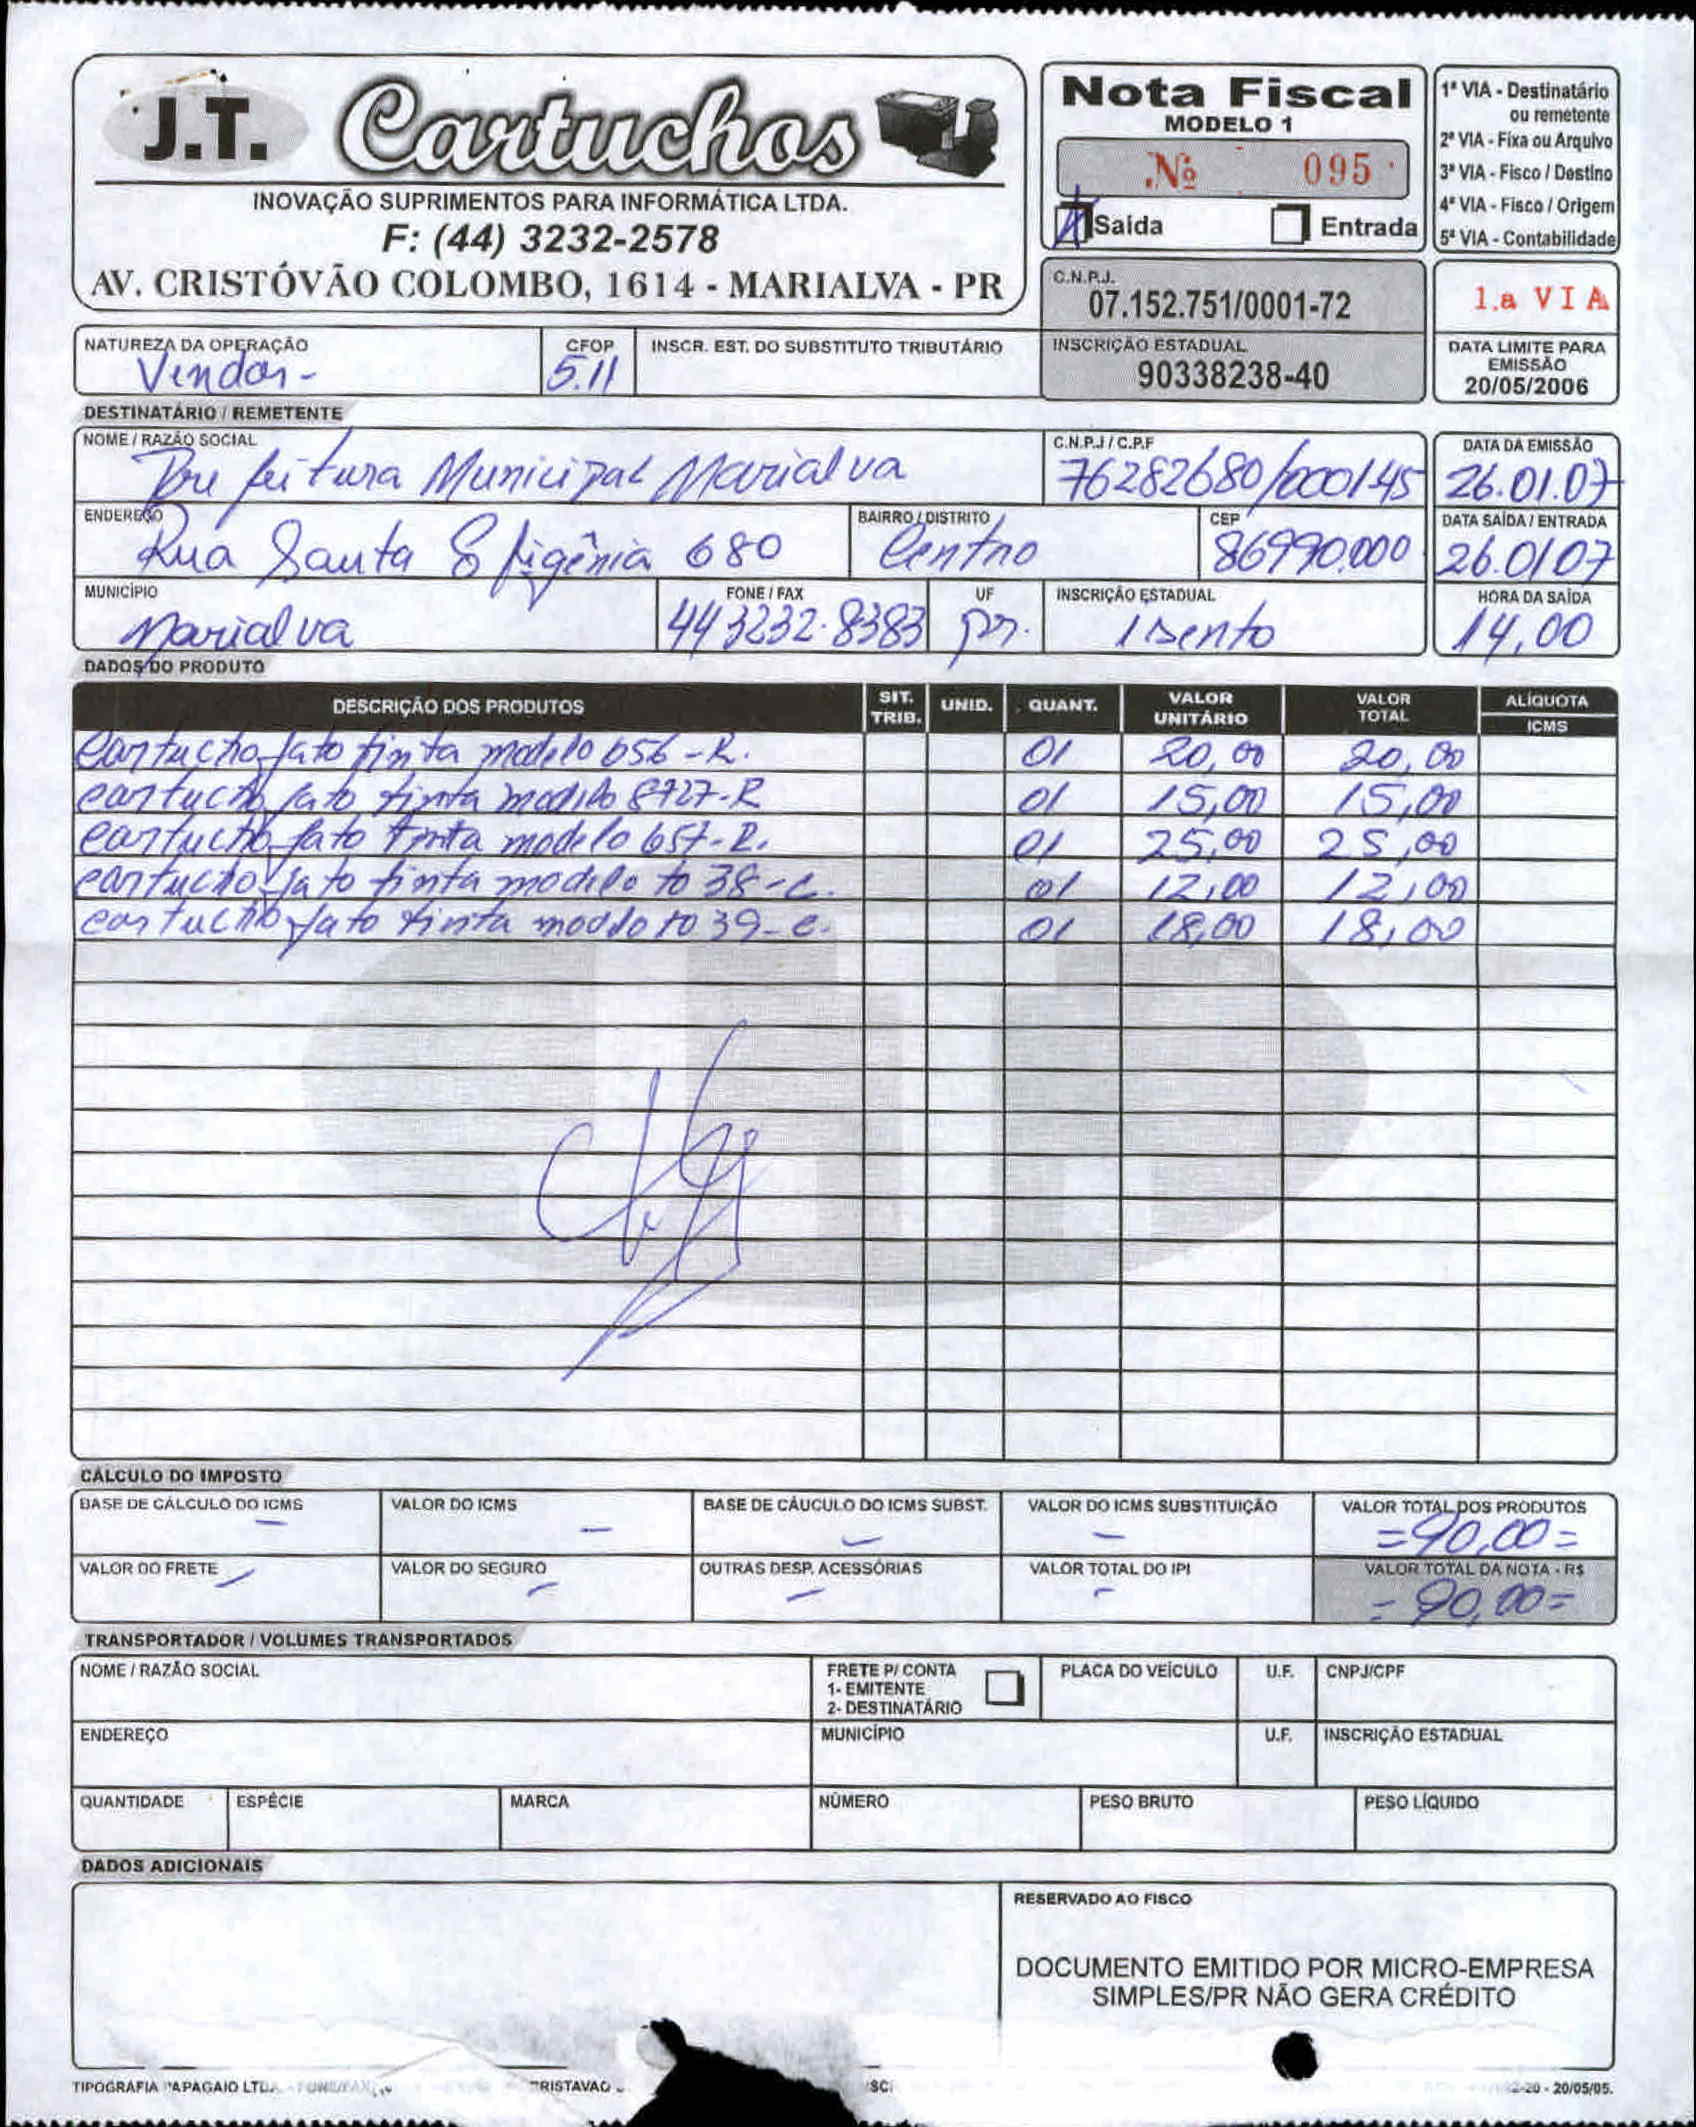 J.T. Cartuchos
INOVAÇÃO SUPRIMENTOS PARA INFORMÁTICA LTDA.
F: (44) 3232-2578
AV. CRISTÓVÃO COLOMBO, 1614 - MARIALVA - PR
Nota Fiscal
MODELO 1
Nº 095
Saída Entrada
1ª VIA - Destinatário
ou remetente
2ª VIA - Fixa ou Arquivo
3ª VIA - Fisco / Destino
4ª VIA - Fisco / Origem
5ª VIA - Contabilidade
C.N.P.J.
07.152.751/0001-72
1.a VIA
NATUREZA DA OPERAÇÃO CFOP INSCR. EST. DO SUBSTITUTO TRIBUTÁRIO
Vendas - 5.11
INSCRIÇÃO ESTADUAL
90338238-40
DATA LIMITE PARA
EMISSÃO
20/05/2006
DESTINATÁRIO / REMETENTE
NOME / RAZÃO SOCIAL C.N.P.J / C.P.F DATA DA EMISSÃO
Prefeitura Municipal Marialva 76282680/000145 26.01.07
ENDEREÇO BAIRRO / DISTRITO CEP DATA SAÍDA / ENTRADA
Rua Santa Efigênia 680 Centro 86990.000 26.0107
MUNICÍPIO FONE / FAX UF INSCRIÇÃO ESTADUAL HORA DA SAÍDA
Marialva 44 3232-8383 pr. Isento 14,00
DADOS DO PRODUTO
DESCRIÇÃO DOS PRODUTOS SIT. TRIB. UNID. QUANT. VALOR UNITÁRIO VALOR TOTAL ALÍQUOTA ICMS
Cartucho jato tinta modelo 656 - R. 01 20,00 20,00
cartucho jato tinta modelo 8727-R 01 15,00 15,00
cartucho jato tinta modelo 657-R. 01 25,00 25,00
cartucho jato tinta modelo to 38-c. 01 12,00 12,00
cartucho jato tinta modelo to 39-c. 01 18,00 18,00
CÁLCULO DO IMPOSTO
BASE DE CÁLCULO DO ICMS VALOR DO ICMS BASE DE CÁUCULO DO ICMS SUBST. VALOR DO ICMS SUBSTITUIÇÃO VALOR TOTAL DOS PRODUTOS
- - - - =90,00=
VALOR DO FRETE VALOR DO SEGURO OUTRAS DESP. ACESSÓRIAS VALOR TOTAL DO IPI VALOR TOTAL DA NOTA - R$
- - - - = 90,00=
TRANSPORTADOR / VOLUMES TRANSPORTADOS
NOME / RAZÃO SOCIAL FRETE P/ CONTA PLACA DO VEÍCULO U.F. CNPJ/CPF
1- EMITENTE
2- DESTINATÁRIO
ENDEREÇO MUNICÍPIO U.F. INSCRIÇÃO ESTADUAL
QUANTIDADE ESPÉCIE MARCA NÚMERO PESO BRUTO PESO LÍQUIDO
DADOS ADICIONAIS
RESERVADO AO FISCO
DOCUMENTO EMITIDO POR MICRO-EMPRESA
SIMPLES/PR NÃO GERA CRÉDITO
TIPOGRAFIA PAPAGAIO LTDA. - 20/05/05.